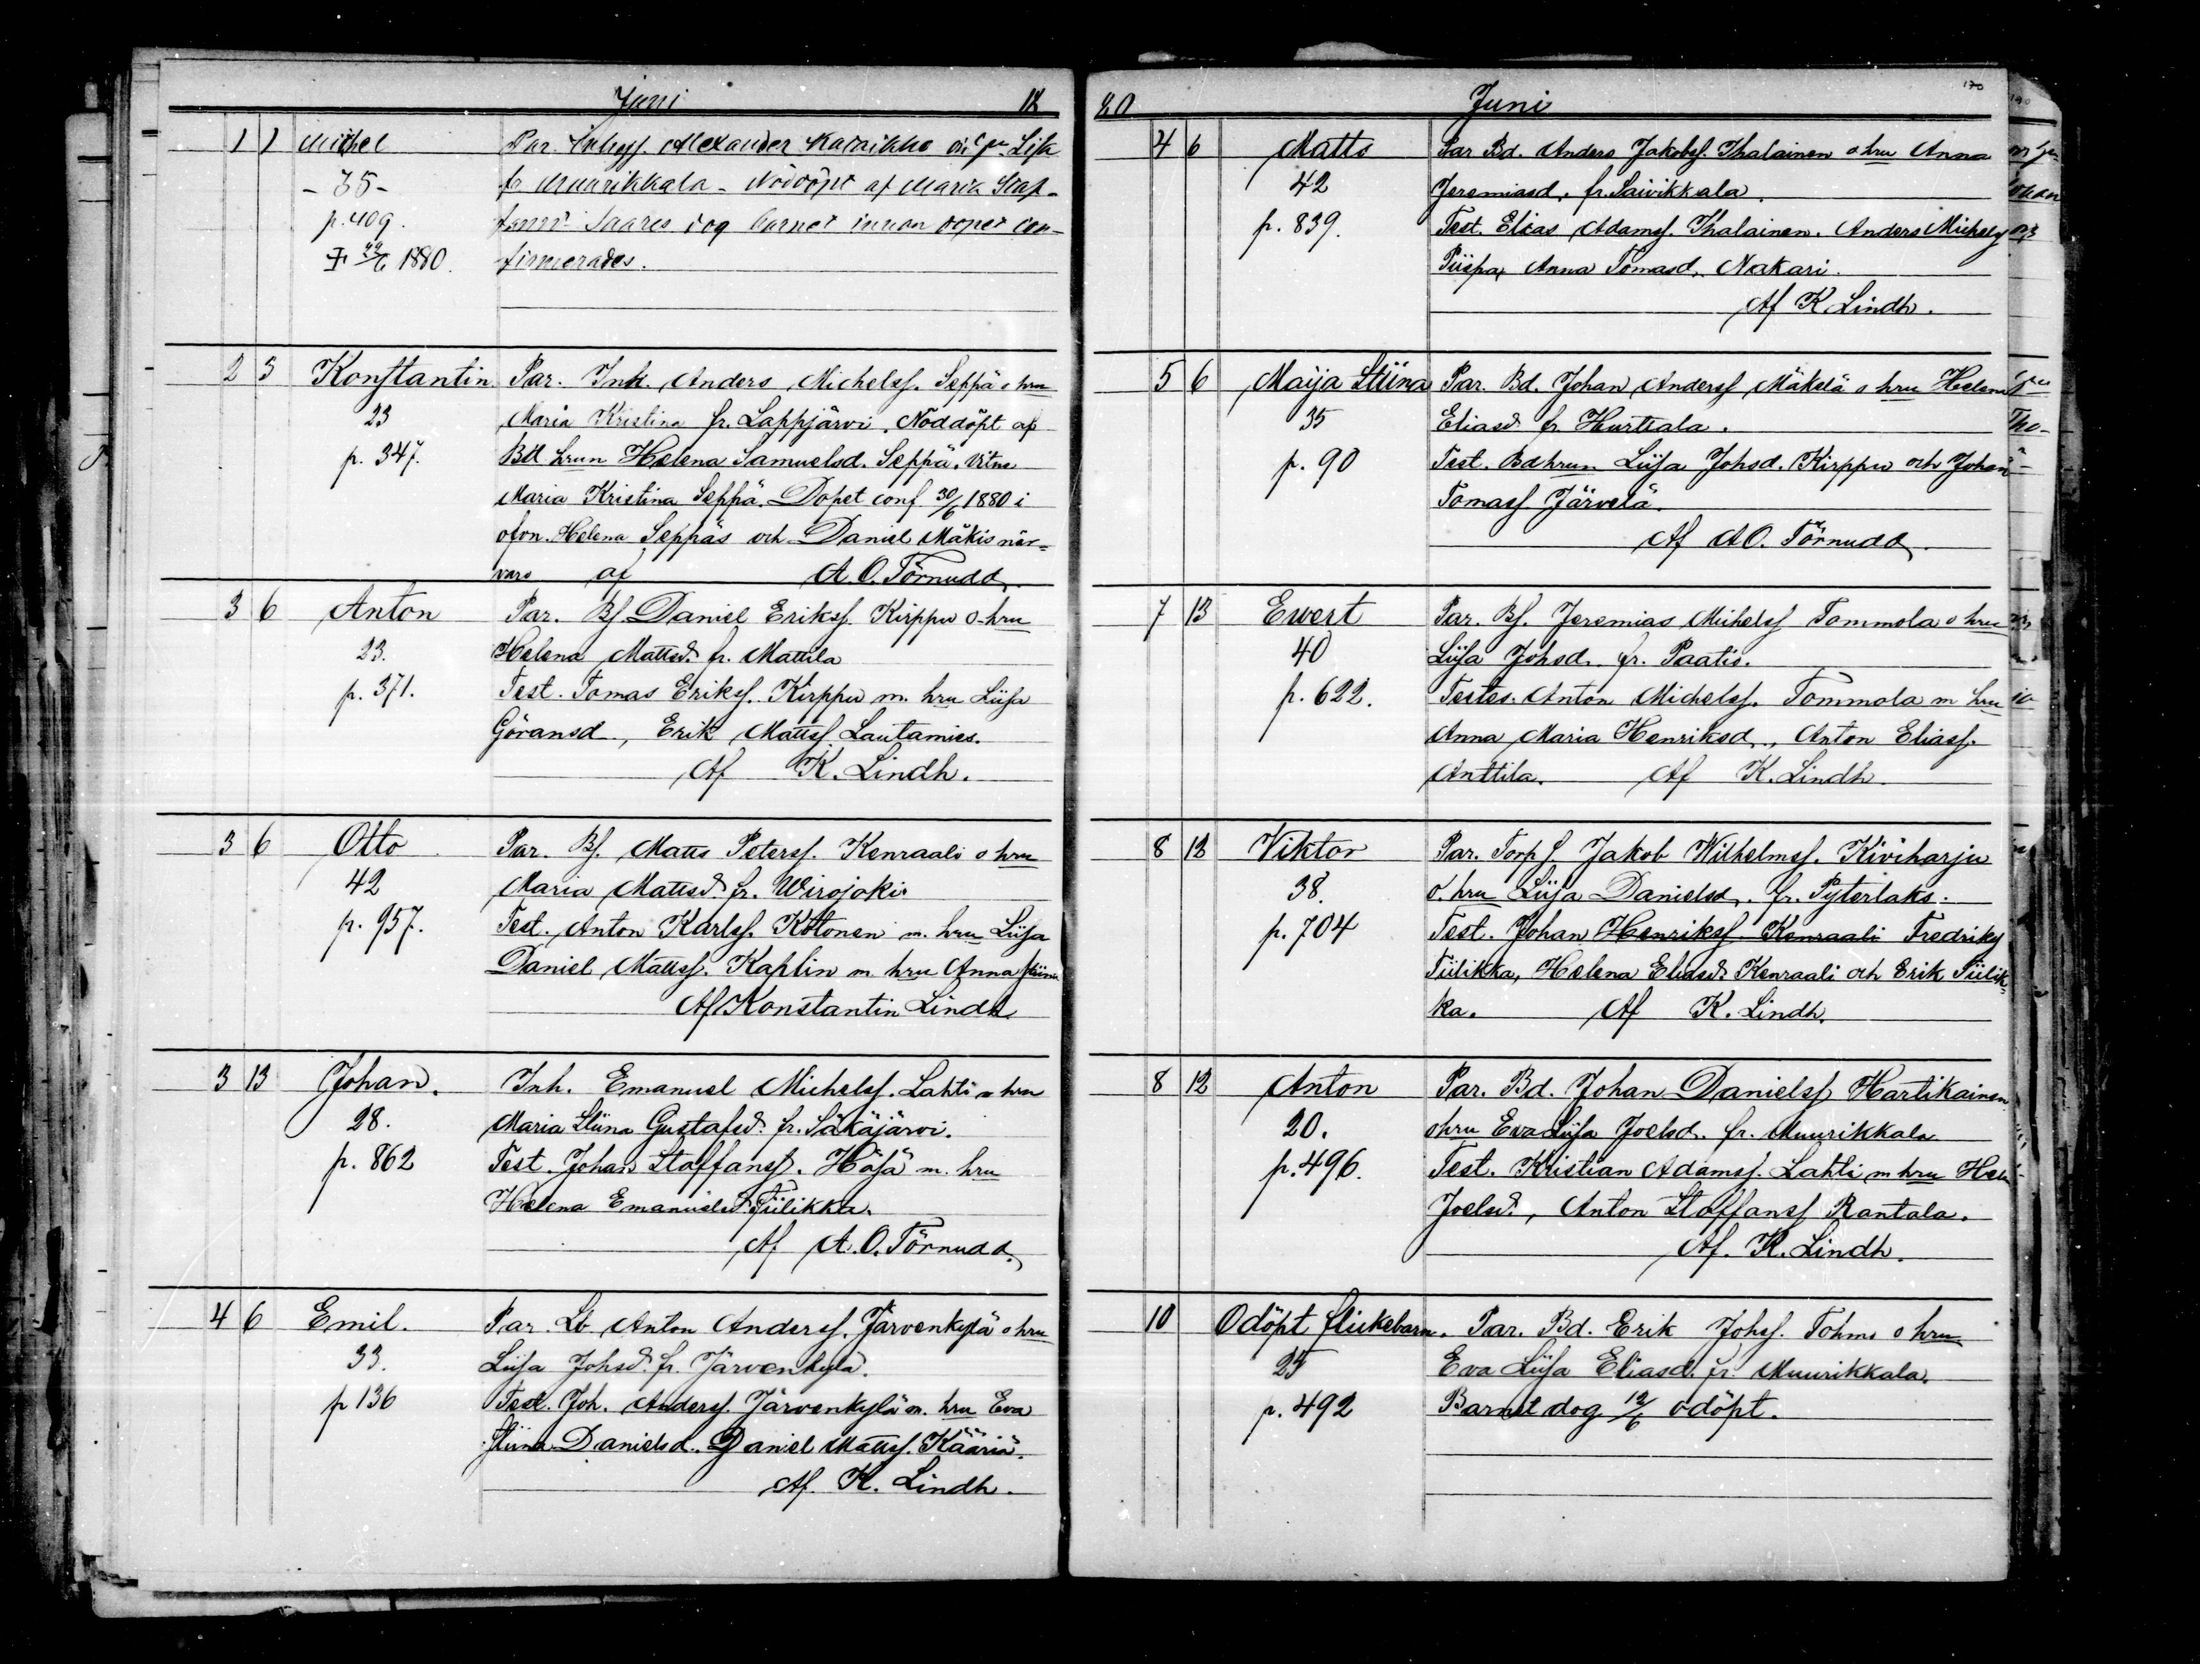 Juni 18
1 1 Michel Par. Inhys. Alexander Karaikko o. hu Lisa
- 35 - fr Muurikkala - Nöddöpt af Maria Staf-
p. 409. Saares dog barnet innan dopet con-
1880. firmerades.
2 3 Konstantin Par. Inh. Anders Michelss. Seppä o hru
23 Maria Kristina fr. Lappjärvi. Nöddöpt af
p. 347. Bd hrun Helena Samuelsd. Seppä. Vitne
Maria Kristina Seppä. Dopet conf 30/6 1880 i
ofvn. Helena Seppäs och Daniel Mäkis när-
varo af A O. Törnudd.
3 6 Anton Par. Bs Daniel Erikss. Kirppu o hru
23. Helena Mattsd. fr. Mattila
p. 371. Test. Tomas Erikss. Kirppu m. hru Liisa
Göransd., Erik Mattss Lautamies.
Af K. Lindh.
3 6 Otto Par. Bs. Matts Peterss. Kenraali o hru
42 Maria Mattsd. fr. Wirojoki.
p. 957. Test. Anton Karlss. Kottonen m. hru Liisa
Daniel Mattss. Kaplin m hru Anna Stiina
Af Konstantin Lindh
3 13 Johan. Inh. Emanuel Michelss. Lahti o hru
28. Maria Stiina Gustafsd. fr. Säkäjärvi.
p. 862 Test. Johan Staffanss. Häsä m. hru
Helena Emanuelsd. Tiilikka.
Af A. O. Törnudd.
4 6 Emil. Par. Lb Anton Anderss. Järvenkylä o hru
33. Liisa Johsd. fr. Järvenkylä.
p 136 Test. Joh. Anderss. Järvenkylä m. hru Eva
Stiina Danielsd. Daniel Mattss. Kääriä.
Af. K. Lindh.
80 Juni 170
4 6 Matts Par Bd. Anders Jakobss. Ihalainen o hru Anna
42 Jeremiasd. fr. Säivikkala.
p. 839. Test. Elias Adamss. Ihalainen. Anders Michelss
Piispa, Anna Tomasd. Nakari.
Af K Lindh.
5 6 Maija Stiina Par. Bd. Johan Anderss Mäkelä o hru Helena
35 Eliasd fr Hurttala.
p. 90 Test. Bd hrun Liisa Johsd. Kirppu och Johan
Tomass. Järvelä.
Af A O. Törnudd.
7 13 Evert Par. Bs. Jeremias Michelss Tommola o hru
40 Liisa Johsd. fr. Paatio.
p. 622. Testes. Anton Michelss. Tommola m hru
Anna Maria Henriksd., Anton Eliass.
Anttila. Af K. Lindh.
8 12 Viktor Par. Torp s. Jakob Wilhelmss. Kiviharju
38. o. hru Liisa Danielsd. fr. Pyterlaks.
p. 704 Test. Johan Henrikss. Kenraali Fredrikss
Tiilikka, Helena Eliasd. Kenraali och Erik Tiilik-
ka. Af K. Lindh.
8 12 Anton Par. Bd. Johan Danielss Hartikainen
20. o hru Eva Liisa Joelsd. fr. Muurikkala
p. 496. Test. Kristian Adamss. Lahti m hru Hele
Joelsd., Anton Staffanss Rantala.
Af. K. Lindh.
10 Odöpt flickebarn. Par. Bd. Erik Johss. Tohmo o hru
25 Eva Liisa Eliasd. fr. Muurikkala.
p. 492 Barnet dog 12/6 odöpt.